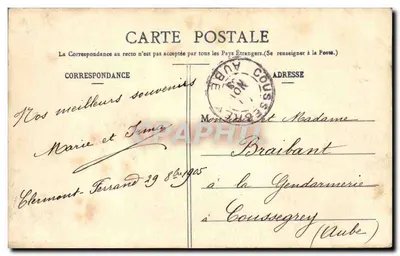 CARTE POSTALE
La Correspondance au recto n'est pas acceptée par tous les Pays Étrangers. (Se renseigner à la Poste.)
CORRESPONDANCE
ADRESSE
COUSSEGREY
AUBE
Nos meilleurs souvenirs
Marie et
Clermont-Ferrand 29 8bre 1905
Mon et Madame
Braibant
à la Gendarmerie
à Coussegrey
(Aube)